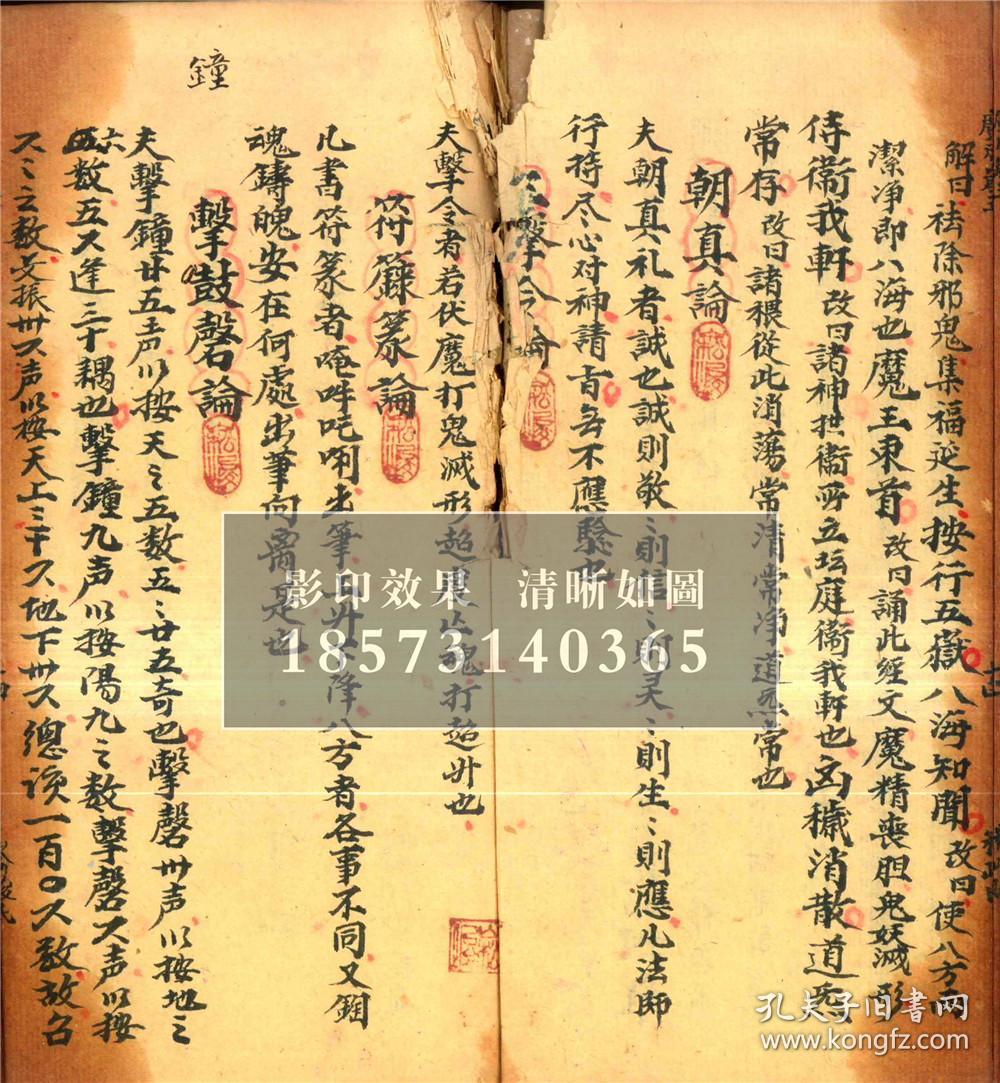 解曰祛除邪鬼集福延生按行五嶽八海知聞改曰使八方
潔净即八海也魔王束首改曰誦此經文魔精喪胆鬼妖滅形
侍衛我軒改曰諸神拱衛所立坛庭衛我軒也凶穢消散道炁
常存改曰諸穢從此消荡常清常净道炁常也
朝真論
夫朝真礼者誠也誠則敬〻則信〻則灵〻則生〻則應凡法師
行持尽心对神請旨無不應驗也
擊令論
夫擊令者若伏魔打鬼滅形超鬼打超升也
符籙篆論
凡書符篆者唵吽吒唎出筆降八方者各事不同又
魂鑄魄安在何處出筆向离是也
擊鼓磬論
鐘
夫擊鐘廿五声以按天之五数五〻廿五奇也擊磬卅声以按地之
六数五六逢三十耦也擊鐘九声以按陽九之数擊磬六声以按
六之之数交振卅六声以按天上三十六地下卅六總该一百〇六数故召
影印效果 清晰如圖
18573140365
孔夫子旧书网
www.kongfz.com